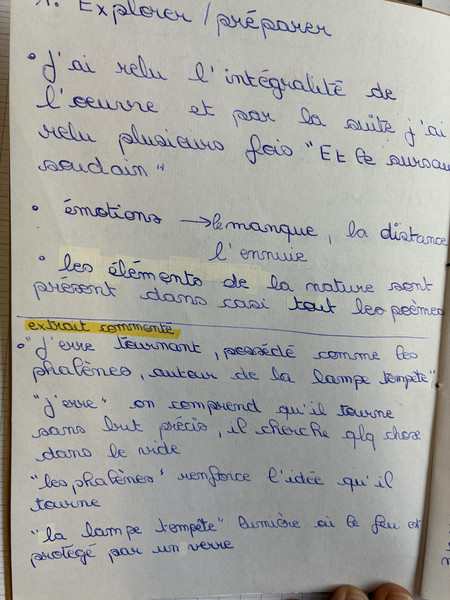 1. Explorer / préparer
• J'ai relu l'intégralité de
l'œuvre et par la suite j'ai
relu plusieurs fois "Et le sursau
soudain"
• émotions → le manque, la distance
l'ennuie
• les éléments de la nature sont
présent dans casi tout les poèmes
extrait commenté
• "J'erre tournant, possédé comme les
phalènes, autour de la lampe tempête"
"j'erre" on comprend qu'il tourne
sans but précis, il cherche qlq chose
dans le vide
"les phalènes" renforce l'idée qu'il
tourne
"la lampe tempête" lumière où le feu est
protégé par un verre